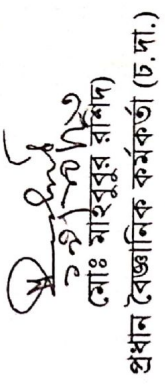 (মোঃ মাহবুবুর রশিদ)
প্রধান বৈজ্ঞানিক কর্মকর্তা (চ.দা.)